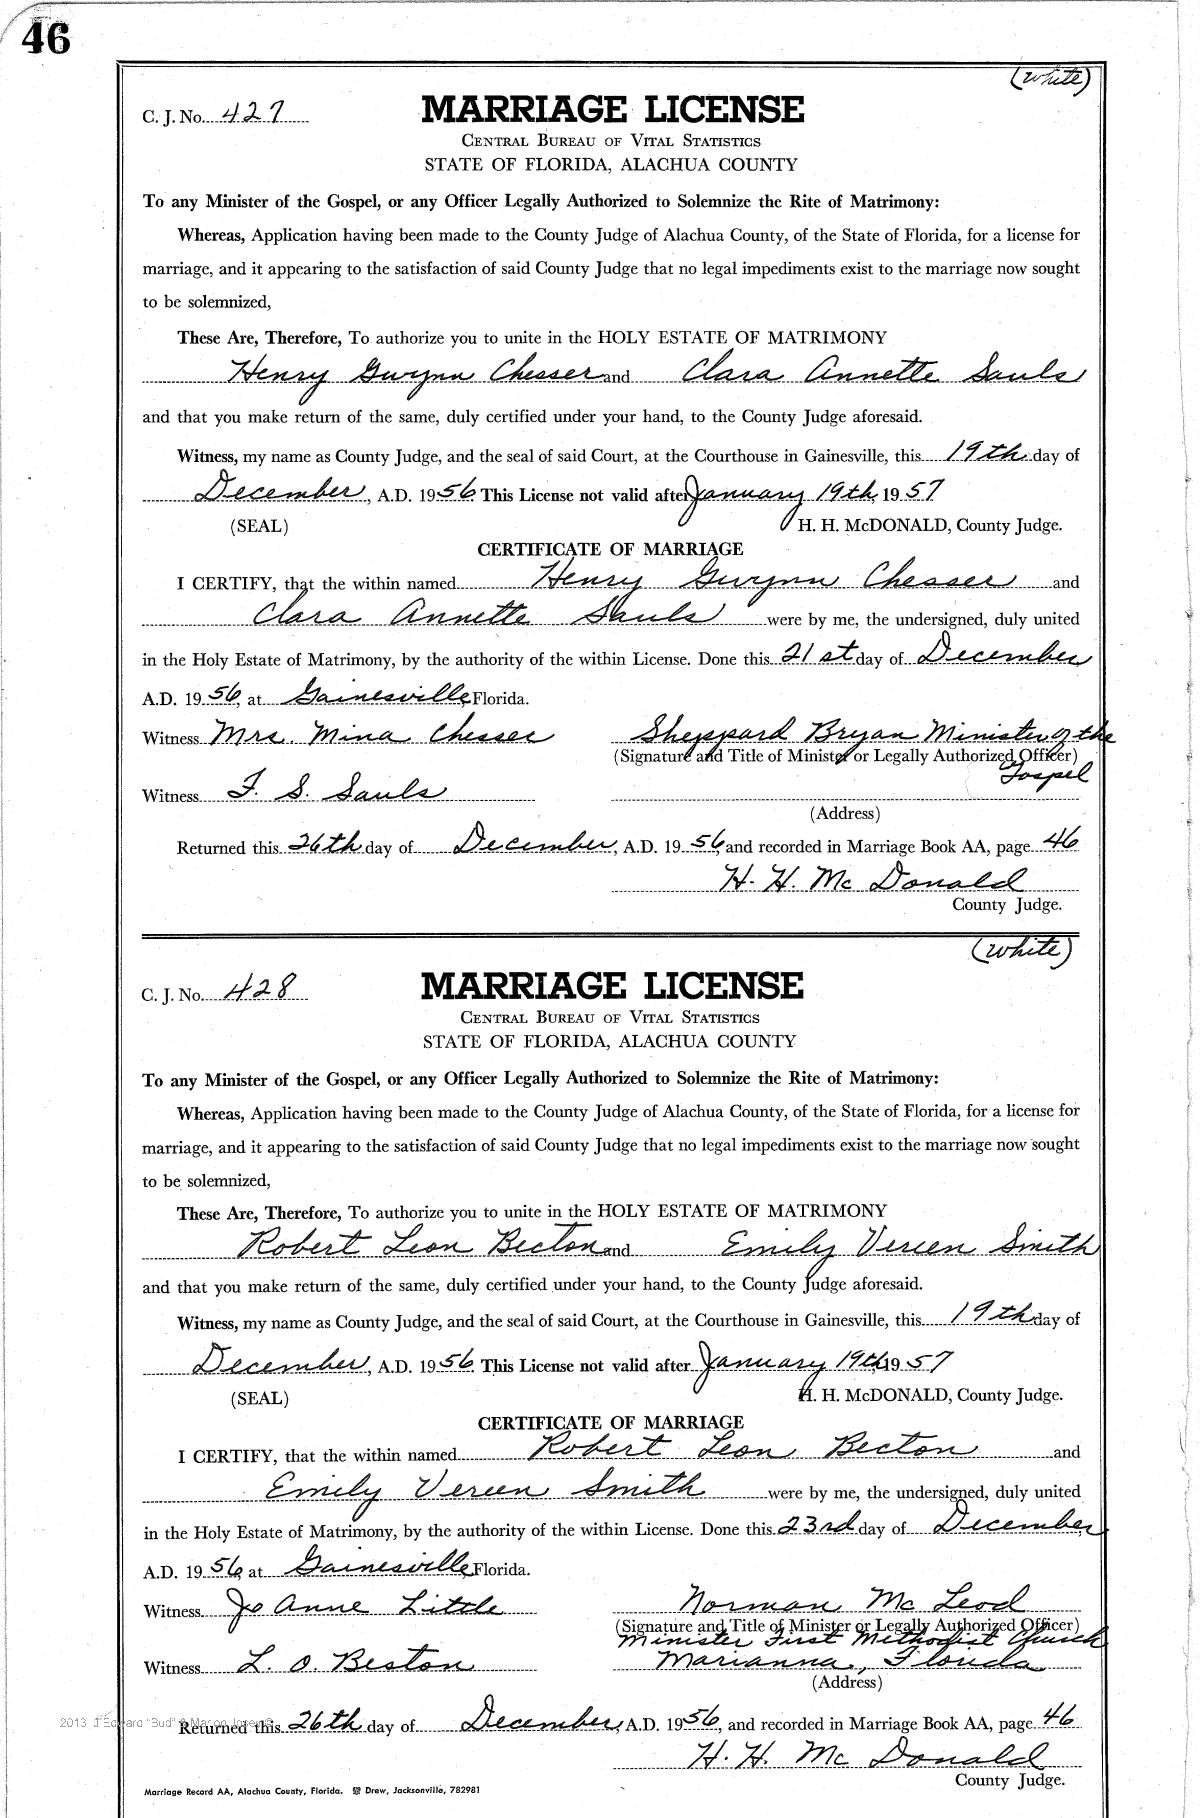 46
(white)
C. J. No. 427
MARRIAGE LICENSE
CENTRAL BUREAU OF VITAL STATISTICS
STATE OF FLORIDA, ALACHUA COUNTY
To any Minister of the Gospel, or any Officer Legally Authorized to Solemnize the Rite of Matrimony:
Whereas, Application having been made to the County Judge of Alachua County, of the State of Florida, for a license for
marriage, and it appearing to the satisfaction of said County Judge that no legal impediments exist to the marriage now sought
to be solemnized,
These Are, Therefore, To authorize you to unite in the HOLY ESTATE OF MATRIMONY
Henry Gwynn Chesser and Clara Annette Sauls
and that you make return of the same, duly certified under your hand, to the County Judge aforesaid.
Witness, my name as County Judge, and the seal of said Court, at the Courthouse in Gainesville, this 19th day of
December, A.D. 1956 This License not valid after January 19th, 1957
(SEAL) H. H. McDONALD, County Judge.
CERTIFICATE OF MARRIAGE
I CERTIFY, that the within named Henry Gwynn Chesser and
Clara Annette Sauls were by me, the undersigned, duly united
in the Holy Estate of Matrimony, by the authority of the within License. Done this 21st day of December
A.D. 1956, at Gainesville, Florida.
Witness Mrs. Mina Chesser Sheppard Bryan Minister of the
(Signature and Title of Minister or Legally Authorized Officer)
Gospel
Witness F. S. Sauls
(Address)
Returned this 26th day of December, A.D. 1956, and recorded in Marriage Book AA, page 46
H. H. McDonald
County Judge.
(white)
C. J. No. 428
MARRIAGE LICENSE
CENTRAL BUREAU OF VITAL STATISTICS
STATE OF FLORIDA, ALACHUA COUNTY
To any Minister of the Gospel, or any Officer Legally Authorized to Solemnize the Rite of Matrimony:
Whereas, Application having been made to the County Judge of Alachua County, of the State of Florida, for a license for
marriage, and it appearing to the satisfaction of said County Judge that no legal impediments exist to the marriage now sought
to be solemnized,
These Are, Therefore, To authorize you to unite in the HOLY ESTATE OF MATRIMONY
Robert Leon Becton and Emily Vereen Smith
and that you make return of the same, duly certified under your hand, to the County Judge aforesaid.
Witness, my name as County Judge, and the seal of said Court, at the Courthouse in Gainesville, this 19th day of
December, A.D. 1956 This License not valid after January 19th, 1957
(SEAL) H. H. McDONALD, County Judge.
CERTIFICATE OF MARRIAGE
I CERTIFY, that the within named Robert Leon Becton and
Emily Vereen Smith were by me, the undersigned, duly united
in the Holy Estate of Matrimony, by the authority of the within License. Done this 23rd day of December,
A.D. 1956 at Gainesville, Florida.
Witness Jo Anne Little Norman McLeod
(Signature and Title of Minister or Legally Authorized Officer)
Minister First Methodist Church
Witness L. O. Beston Marianna, Florida
(Address)
Returned this 26th day of December, A.D. 1956, and recorded in Marriage Book AA, page 46
H. H. McDonald
County Judge.
Marriage Record AA, Alachua County, Florida. Drew, Jacksonville, 782981